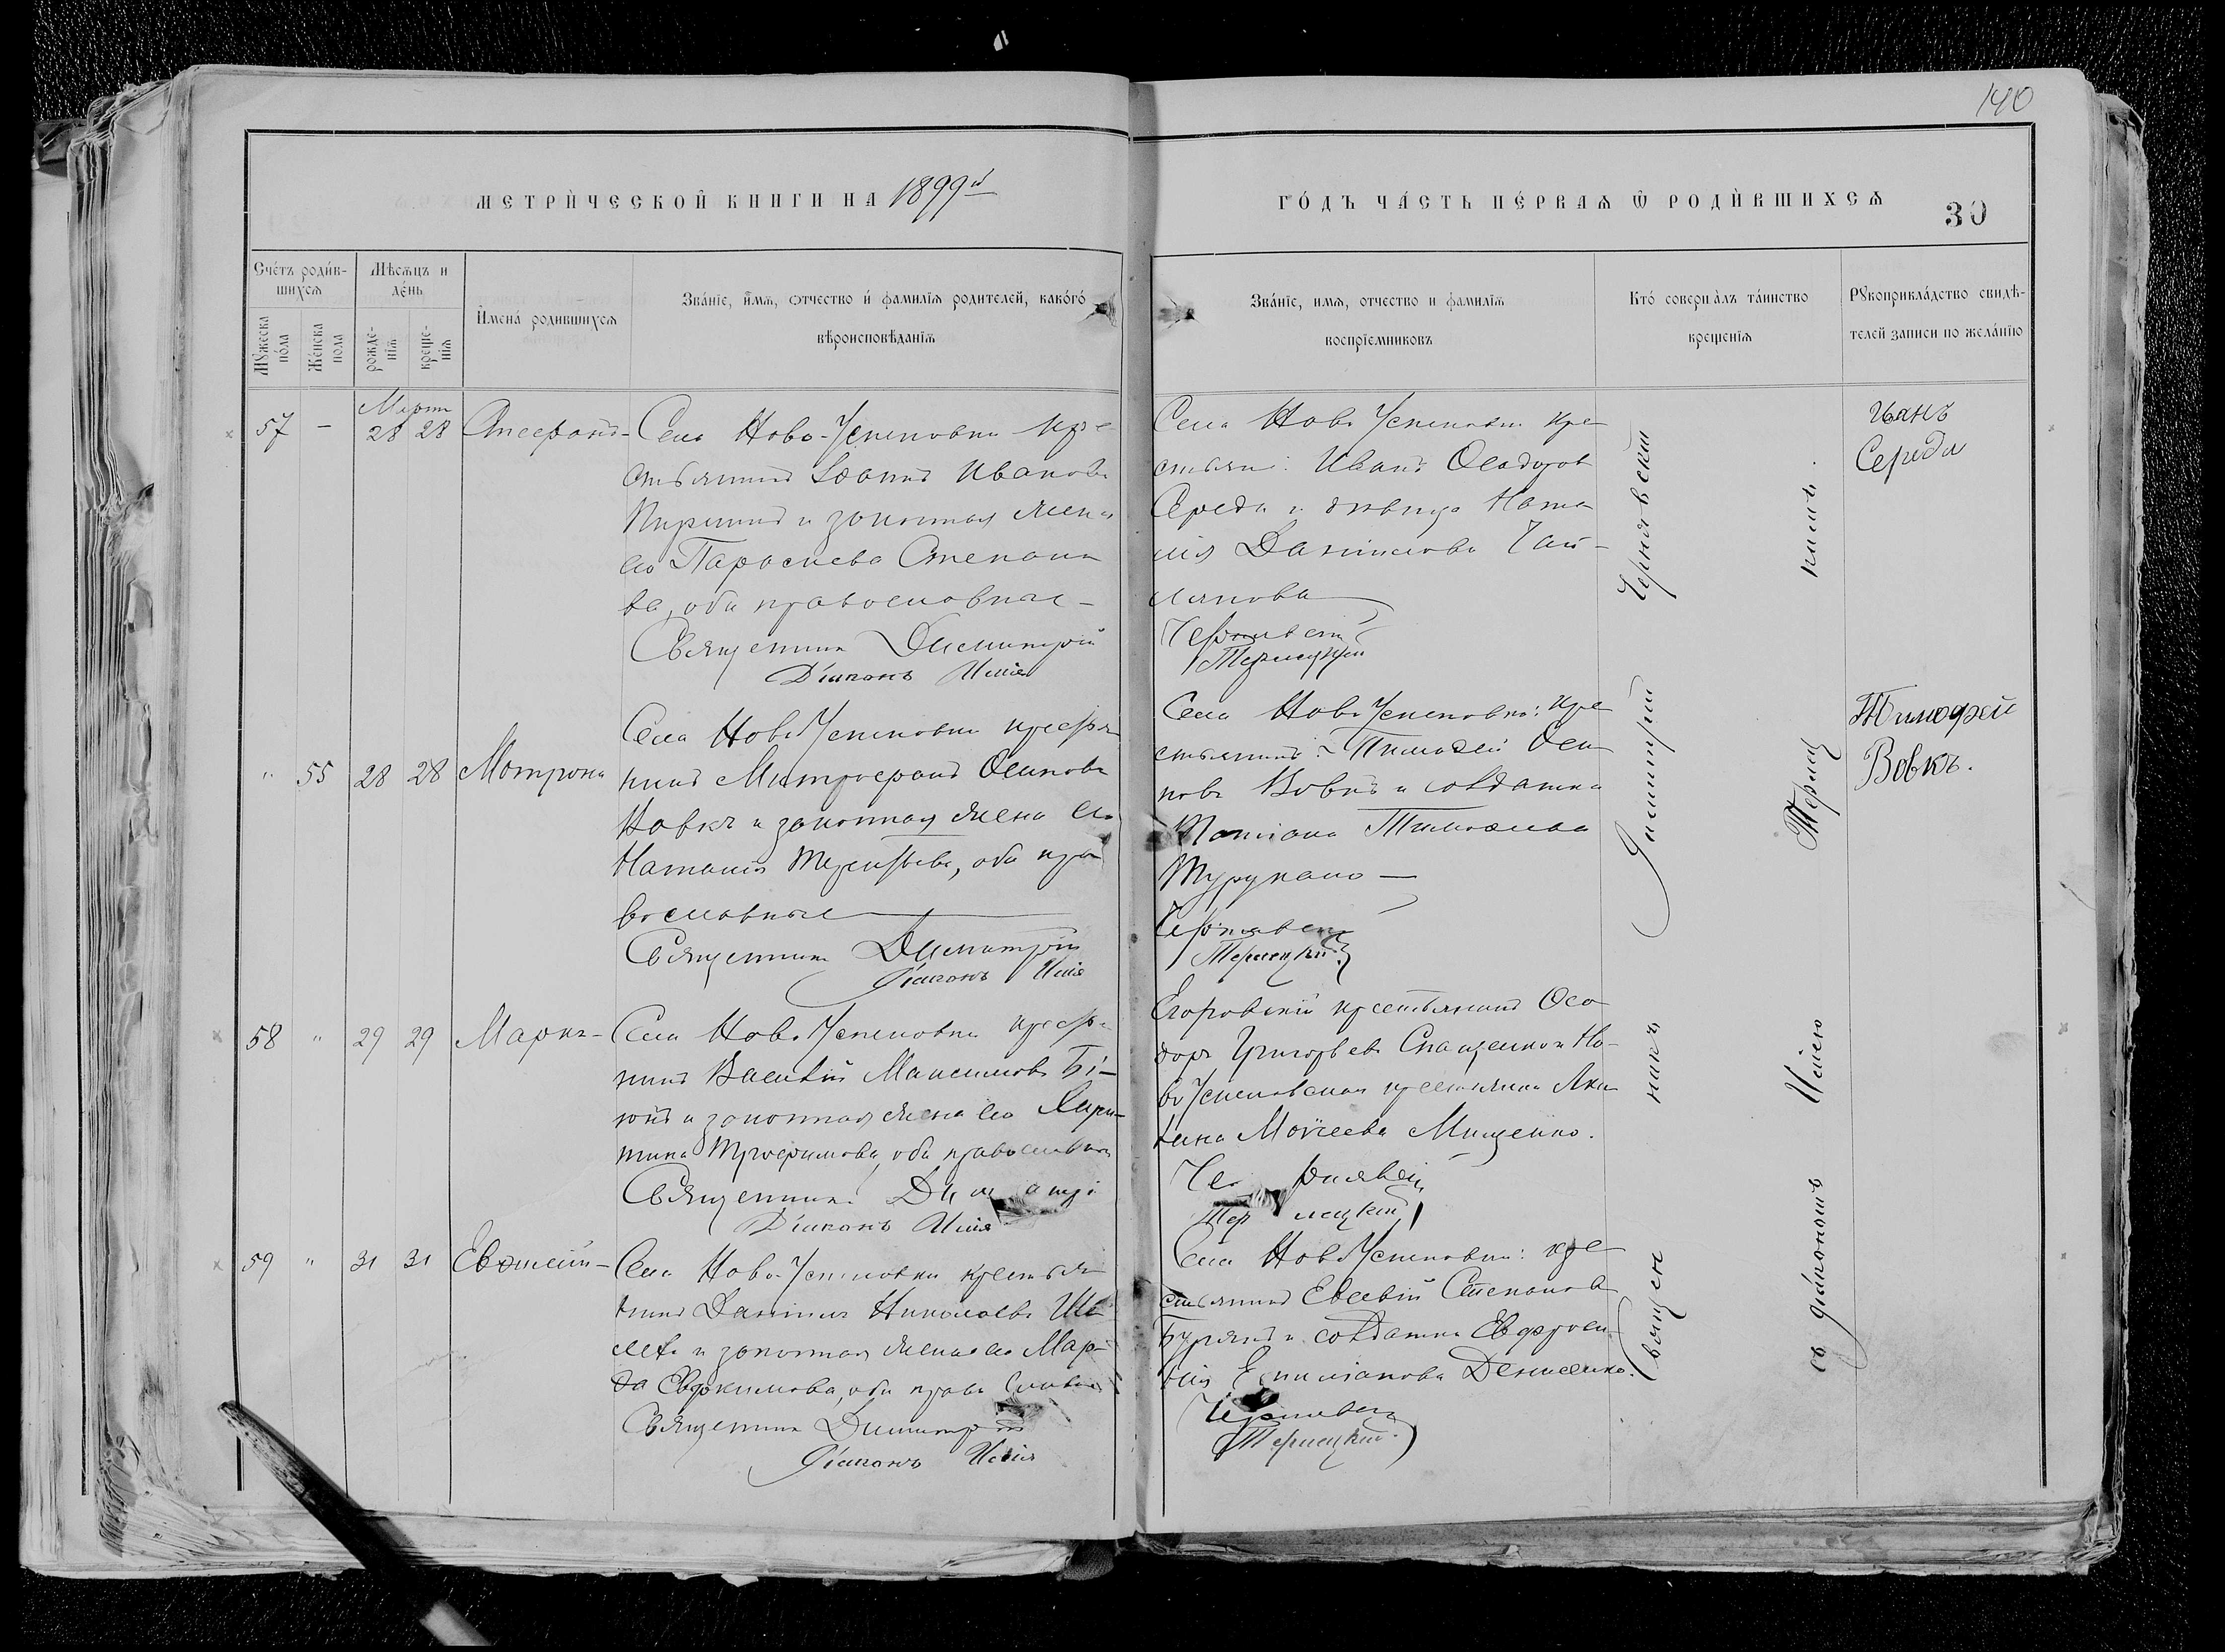 140
МЕТРИ́ЧЕСКОЙ КНИГИ НА 1899й
ГО́ДЪ ЧА́СТЬ ПЕ́РВАѦ Ѿ РОДИ́ВШИХСѦ
30
Сче́тъ роди́в-
шихсѧ
Мѣсѧцъ и
де́нь
Мꙋжеска
по́ла
Же́нска
пола
рожде-
нїѧ
креще-
нїѧ
Имена́ родившихсѧ
Зва́нїе, и́мѧ, ѻтчество и́ фамилїѧ родителей, како́гѡ
вѣроисповѣданїѧ
Зва́нїе, имѧ, отчество и фамилїѧ
воспрїемниковъ
Кто́ соверша̀лъ та́инство
крещенїѧ
Рꙋкоприкла́дство свидѣ-
телей записи по жела́нїю
Мартъ
57 - 28 28
Села Ново-Успеновки кре-
стьянинъ Іоаннъ Ивановъ
и законная жена
его Параскева Степано-
ва, оба православные -
Священникъ Димитрій
Діаконъ Илія
Села Ново Успеновки кре-
стьян: Иванъ Ѳеодоров
Середа и девица Ната-
лія Даніилова
Чернявскій
Терлецкій
Иванъ
Середа
" 55 28 28 Матрона
Села Ново Успеновки крестья-
нинъ Митрофанъ Осиповъ
и законная жена его
Наталія Терентьева, оба пра-
вославные
Священникъ Димитрій
Діаконъ Илія
Села Ново Успеновки: кре
стьянинъ: Тимоѳей Оси
повъ Вовкъ и солдатка
Татіана Тимоѳеева
Чернявскій
Терлецкій
Тимофей
Вовкъ.
58 " 29 29 Маркъ-
Села Ново Успеновки крестья-
нинъ Василій Максимовъ
и законная жена его Хари-
тина Трофимова, оба православные
Священникъ Димитрій
Діаконъ Илія
Егоровскій крестьянинъ Ѳео-
доръ Григорьевъ Спащенко и Но-
во Успеновская крестьянка Аки-
лина Моисеева Мищенко.
Чернявскій
Терлецкій
59 " 31 31 Евѳимій-
Села Ново-Успеновки крестья-
нинъ Даніилъ Николаевъ
и законная жена его Мар-
ѳа Евдокимова, оба православные
Священникъ Димитрій
Діаконъ Илія
Села Ново Успеновки: кре
стьянинъ Евсевій Степановъ
Бурякъ и солдатка Евфроси-
нія Емиліанова Денисенко.
Чернявскій
Терлецкій
Священникъ Димитрій Чернявскій
съ діакономъ Иліею Терлецкимъ.